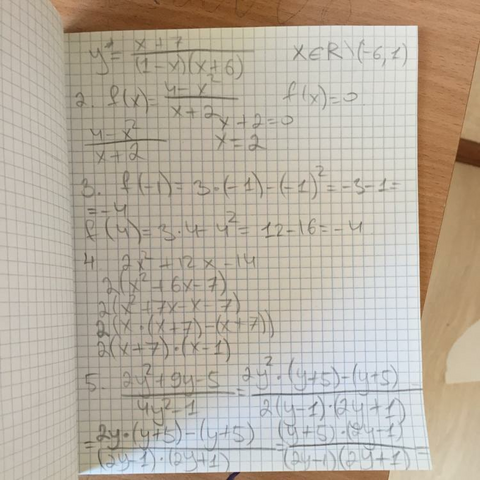 y = x + 7 / (1-x)(x+6)    x∈R \ (-6,1)
2. f(x) = 4-x² / x+2    f(x)=0
4-x² / x+2    x+2=0
x=2
3. f(-1) = 3·(-1)-(-1)² = -3-1=
=-4
f(4)=3·4-4² = 12-16=-4
4. 2x²+12x-14
2(x²+6x-7)
2(x²+7x-x-7)
2(x·(x+7)-(x+7))
2(x+7)·(x-1)
5. 2y²+9y-5 / 4y²-1 = 2y²·(y+5)-(y+5) / 2(y-1)·(2y+1)
= 2y·(y+5)-(y+5) / (2y-1)·(2y+1) = (y+5)·(2y-1) / (2y-1)(2y+1) =